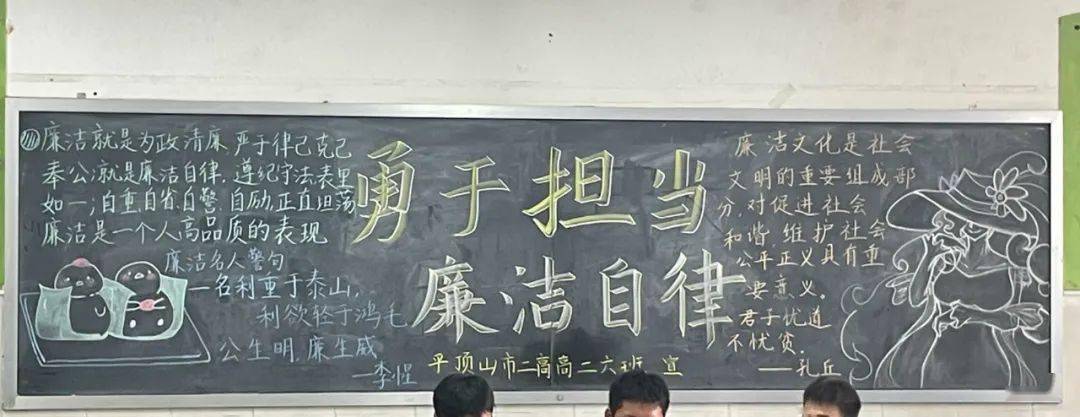 廉洁就是为政清廉 严于律己克己
奉公;就是廉洁自律,遵纪守法表里
如一;自重自省自警,自励,正直坦荡
廉洁是一个人高品质的表现
廉洁名人警句
一名利重于泰山,
利欲轻于鸿毛
公生明,廉生威
—李惺
勇于担当
廉洁自律
平顶山市二高高二六班 宣
廉洁文化是社会
文明的重要组成部
分,对促进社会
和谐,维护社会
公平正义具有重
要意义。
君子忧道
不忧贫。
——孔丘